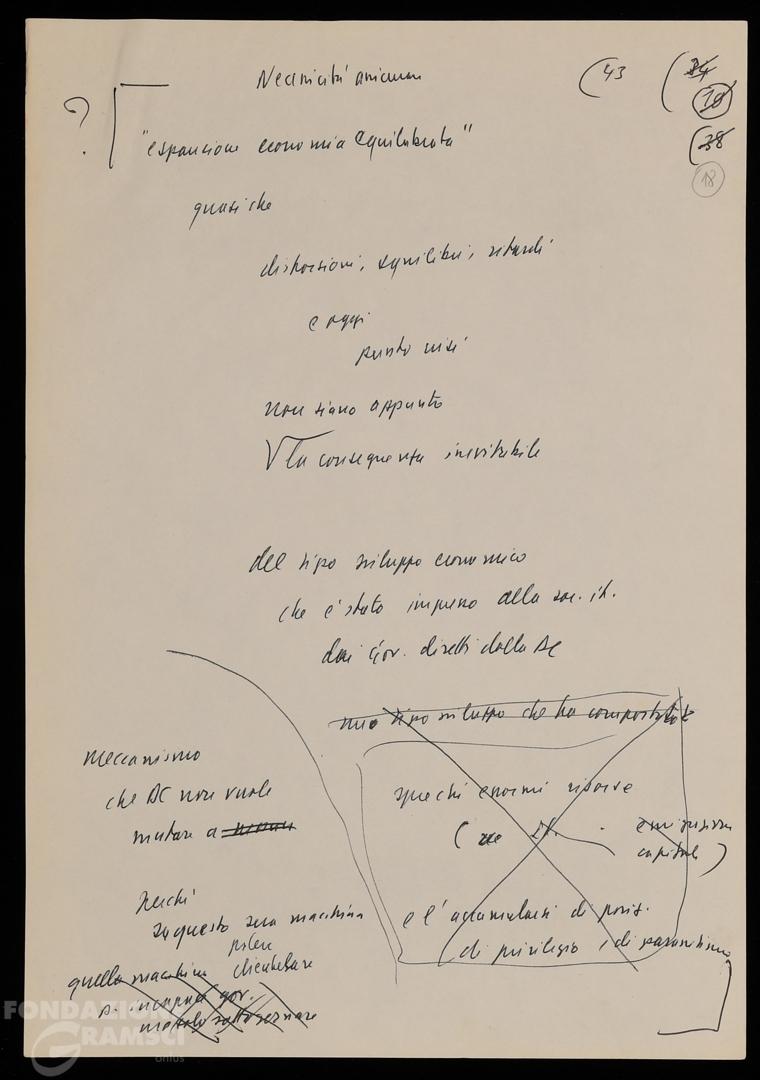 (43
(34
10
(38
18
?
"espansione economia equilibrata"
quasi che
distorsioni, squilibri, ritardi
e oggi
punto crisi
non siano appunto
la conseguenza inevitabile
del tipo sviluppo economico
che è stato impresso alla soc. it.
dai gov. diretti dalla DC
tipo sviluppo che ha comportato
meccanismo
che DC non vuole
mutare a
sprechi enormi risorse
( emigrazione
capitali )
Perché
su questo sua macchina
potere
clientelare
e l'accumularsi di posiz.
di privilegio, di parassitismo
quella macchina
gov.
sottogovernare
FONDAZIONE
GRAMSCI
onlus